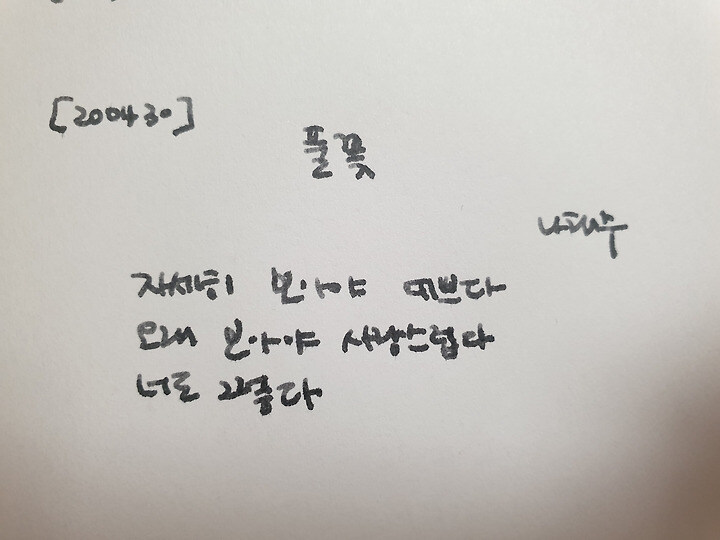 [200430]
풀꽃
나태주
자세히 보아야 예쁘다
오래 보아야 사랑스럽다
너도 그렇다